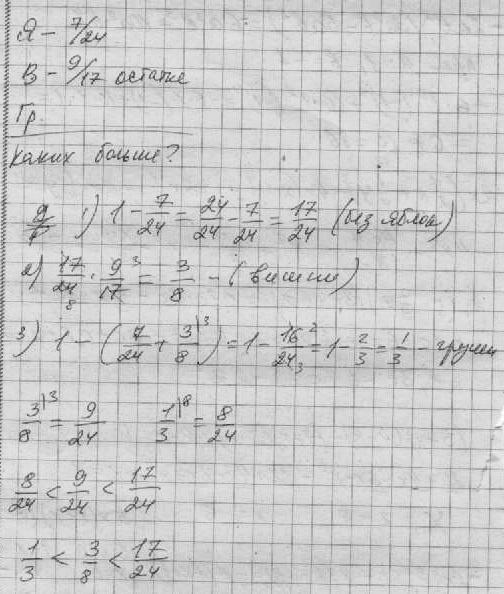 Я - 7/24
В - 9/17 остатка
Гр.
каких больше?
1) 1 - 7/24 = 24/24 - 7/24 = 17/24 (без яблок)
2) 17/24 · 9/17 = 3/8 - (вишни)
3) 1 - (7/24 + 3/8) = 1 - 16/24 = 1 - 2/3 = 1/3 - груши
3/8 = 9/24 1/3 = 8/24
8/24 < 9/24 < 17/24
1/3 < 3/8 < 17/24